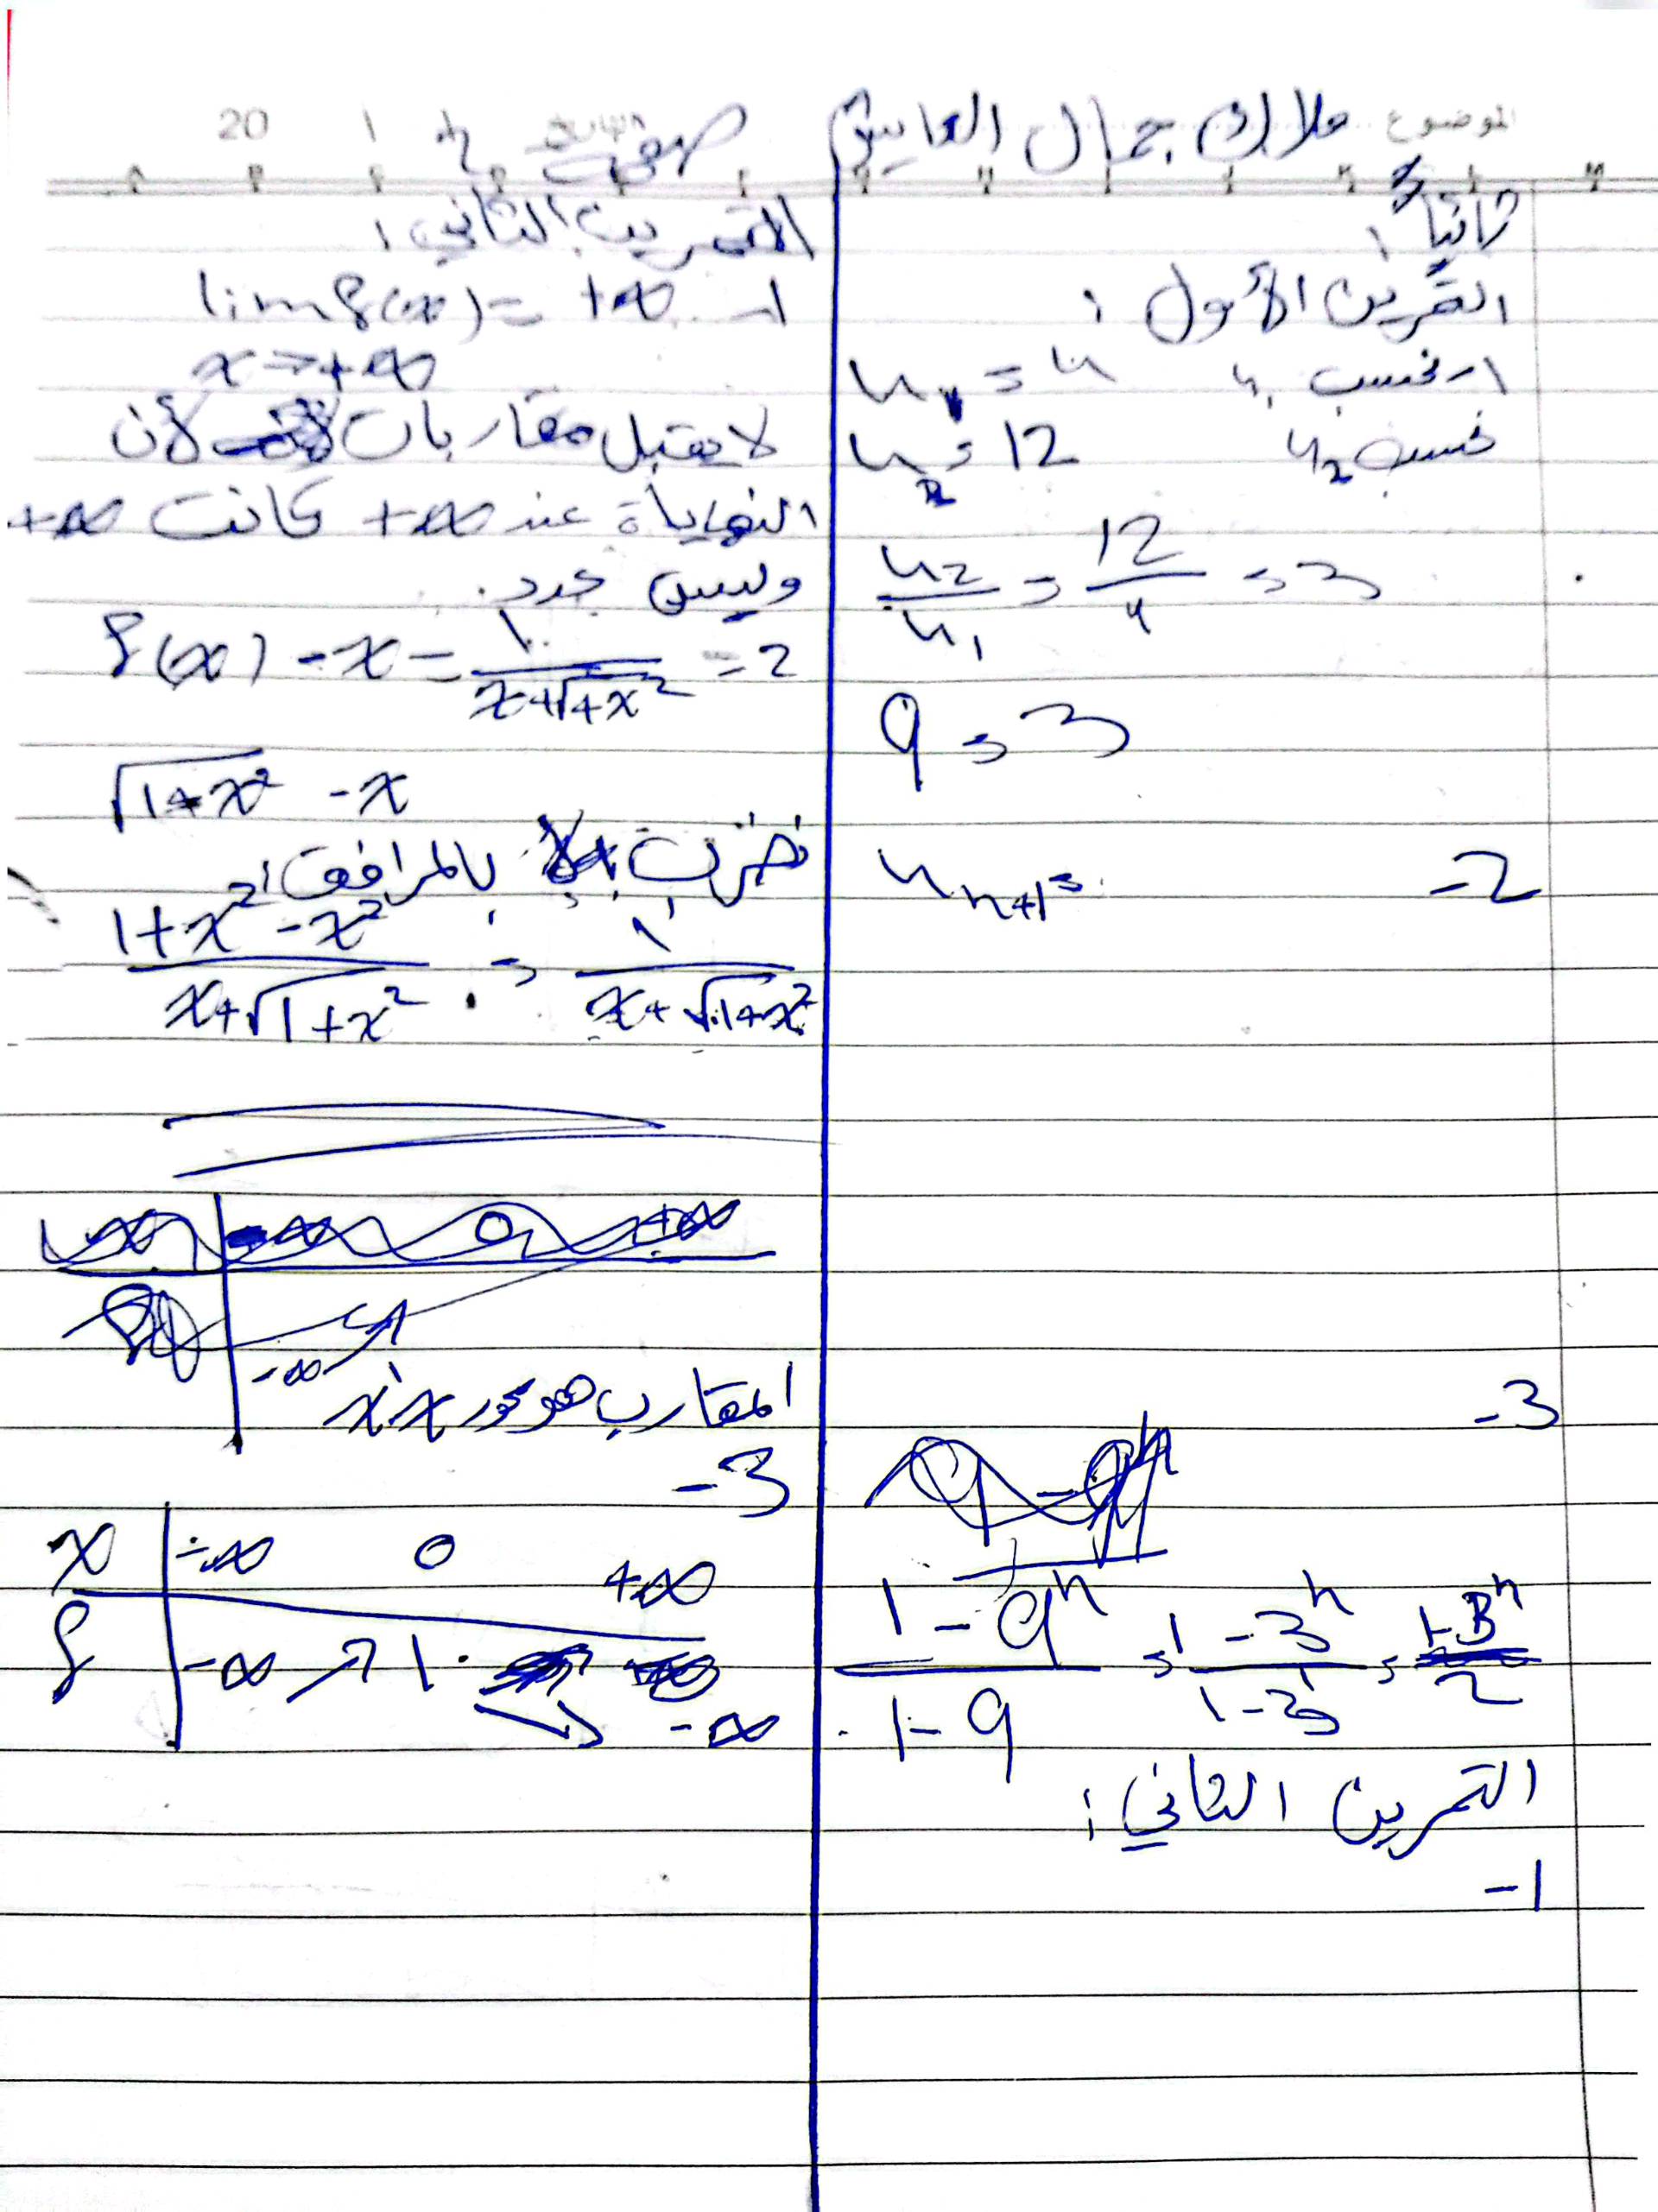 الموضوع ملاك جمال العايق
20 1
ثانياً:
التمرين الأول:
1- نحسب u₁ u₁ = 4
نحسب u₂ u₂ = 12
u₂/u₁ = 12/4 = 3
q = 3
2- uₙ₊₁ =
3-
(1 - qⁿ)/(1 - q) = (1 - 3ⁿ)/(1 - 3) = (1-3ⁿ)/2
التمرين الثاني:
1-
التمرين الثاني:
1- lim f(x) = +∞
x → +∞
لا يقبل مقاربات لأن
النهاياة عند +∞ كانت +∞
وليس عدد.
2- f(x) - x = 1/(x+√1+x²)
√1+x² - x
نضرب بالمرافق:
(1+x²-x²)/(x+√1+x²) = 1/(x+√1+x²)
-∞
المقارب هو محور x'x
3-
x -∞ 0 +∞
f -∞ ↗ 1 ↘ -∞